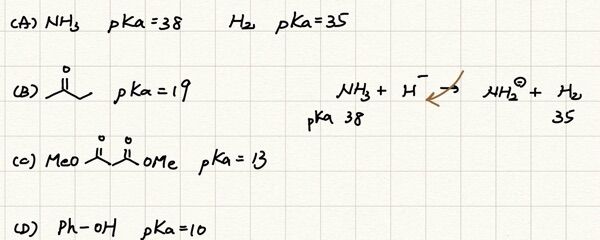 (A) NH₃ pKa=38 H₂ pKa=35
O
(B) pKa=19
NH₃ + H⁻ → NH₂⊖ + H₂
pKa 38 35
O O
(C) MeO OMe pKa=13
(D) Ph-OH pKa=10